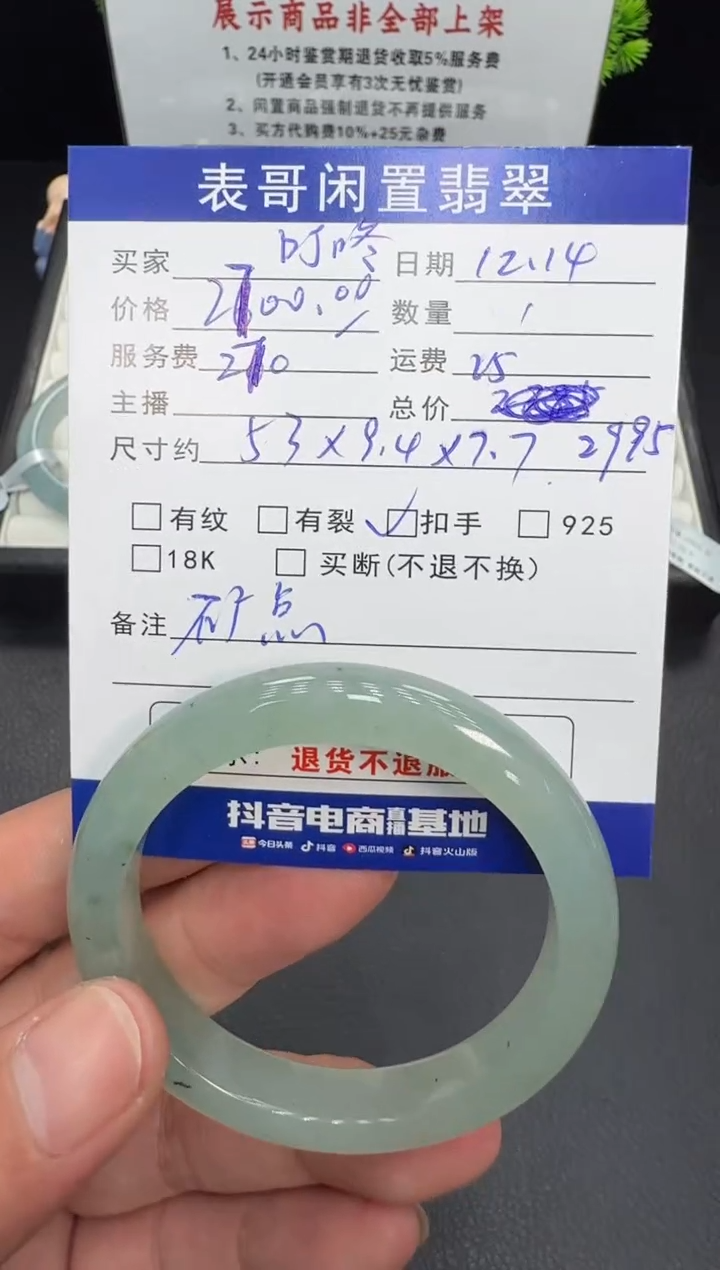 展示商品非全部上架
1、24小时鉴赏期退货收取5%服务费
(开通会员享有3次无忧鉴赏)
2、闲置商品强制退货不再提供服务
3、买方代购费10%+25元杂费
表哥闲置翡翠
买家 叮咚 日期 12.14
价格 2700.00 数量 1
服务费 270 运费 25
主播 总价
尺寸约 53×9.4×7.7 2995
□有纹 □有裂 ☑扣手 □925
□18K □买断(不退不换)
备注 矿点
退货不退服
抖音电商直播基地
今日头条 抖音 西瓜视频 抖音火山版